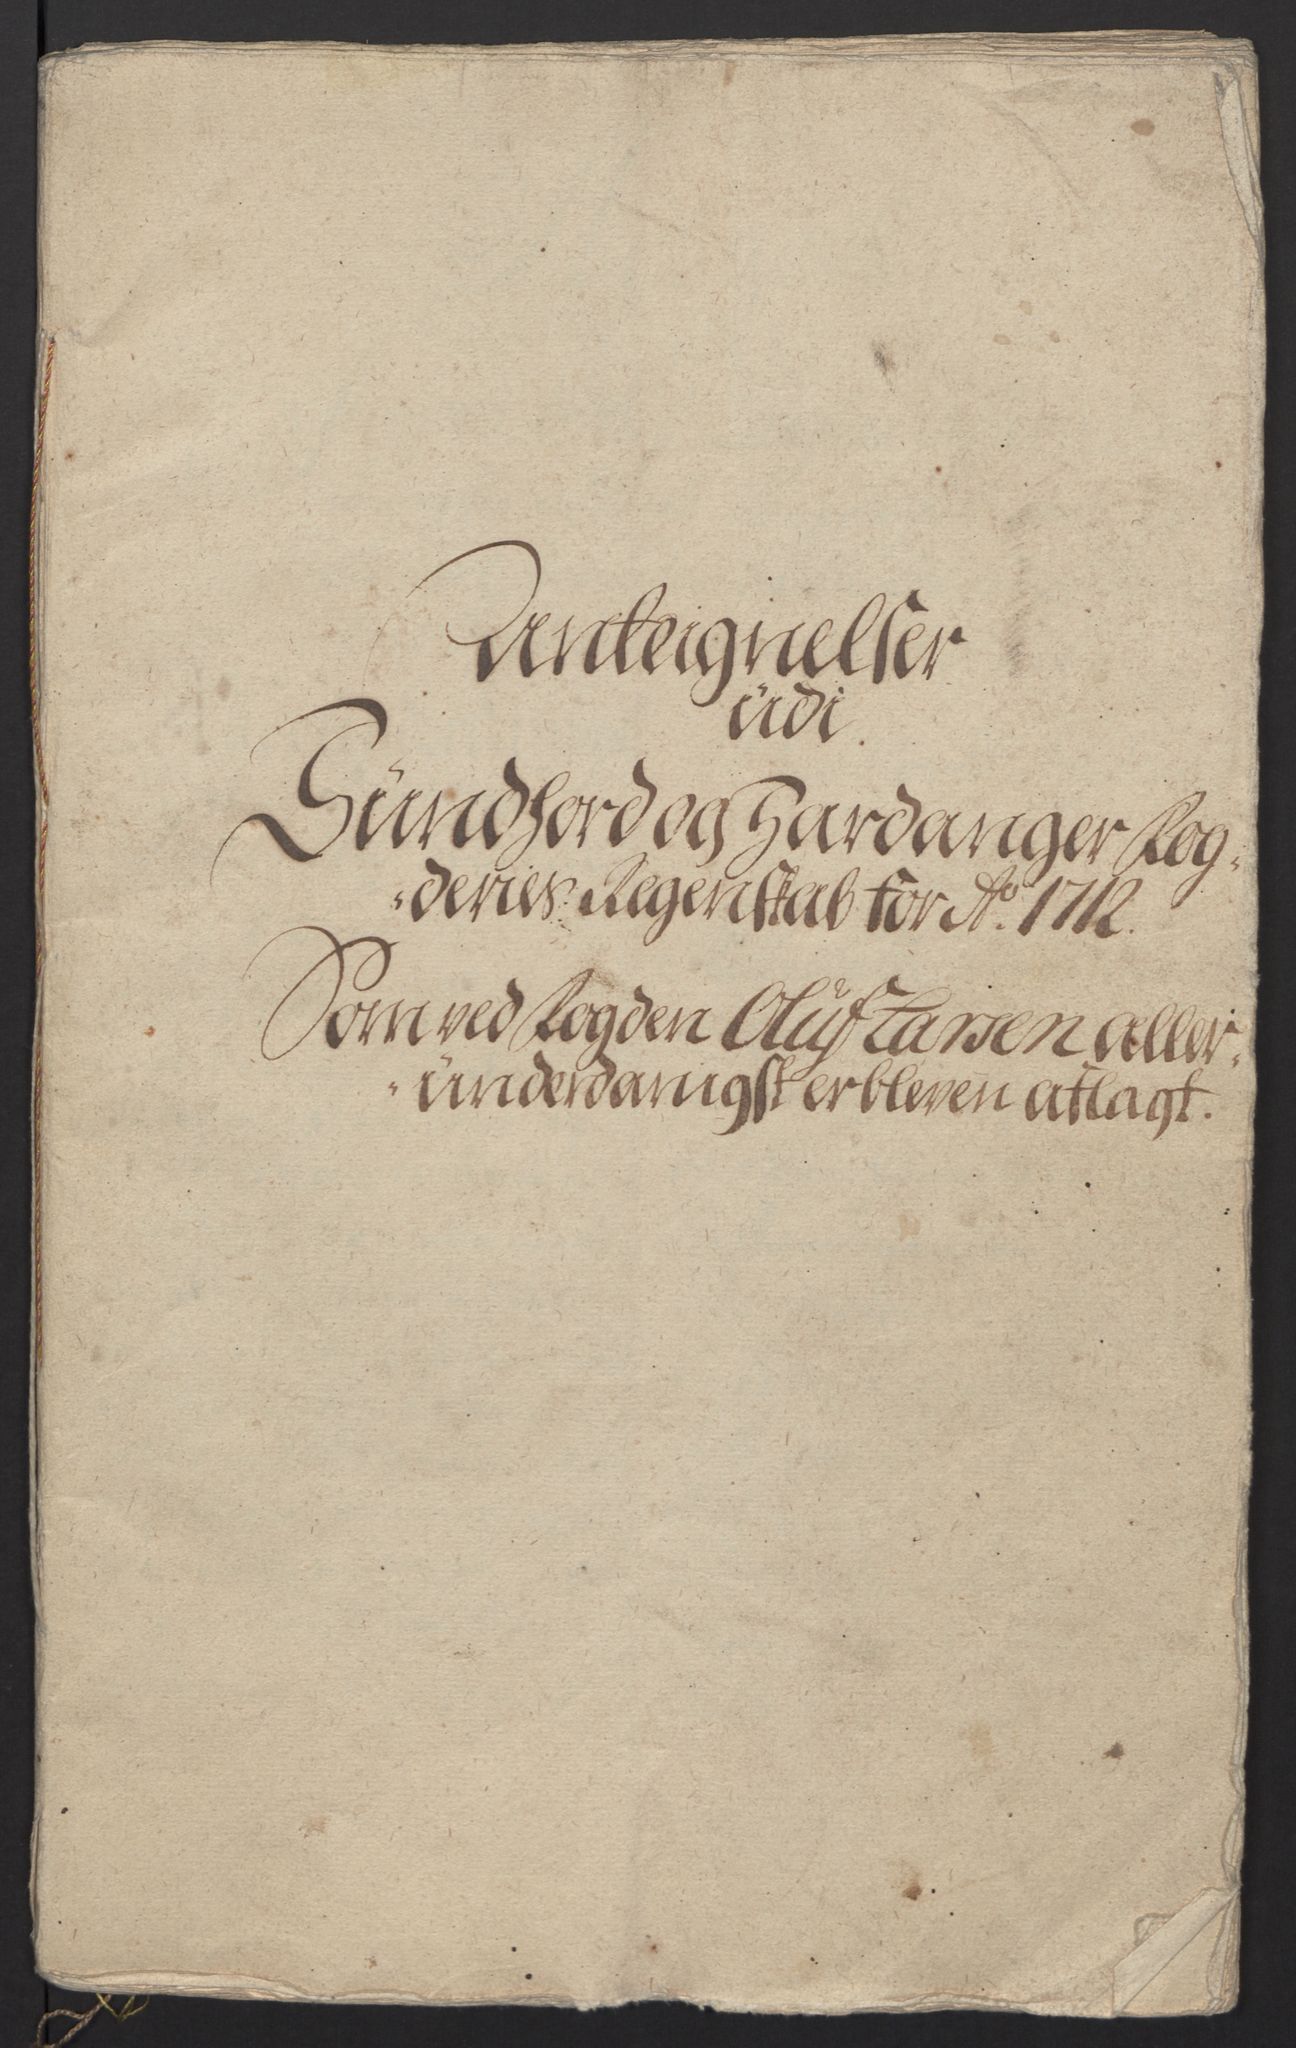 Anteignelser
udi
Sundhord og Hardanger Fog-
-deries Regenskab for Ao. 1712.
Som ved Fogden Oluf Larsen aller-
-underdanigst er bleven aflagt.